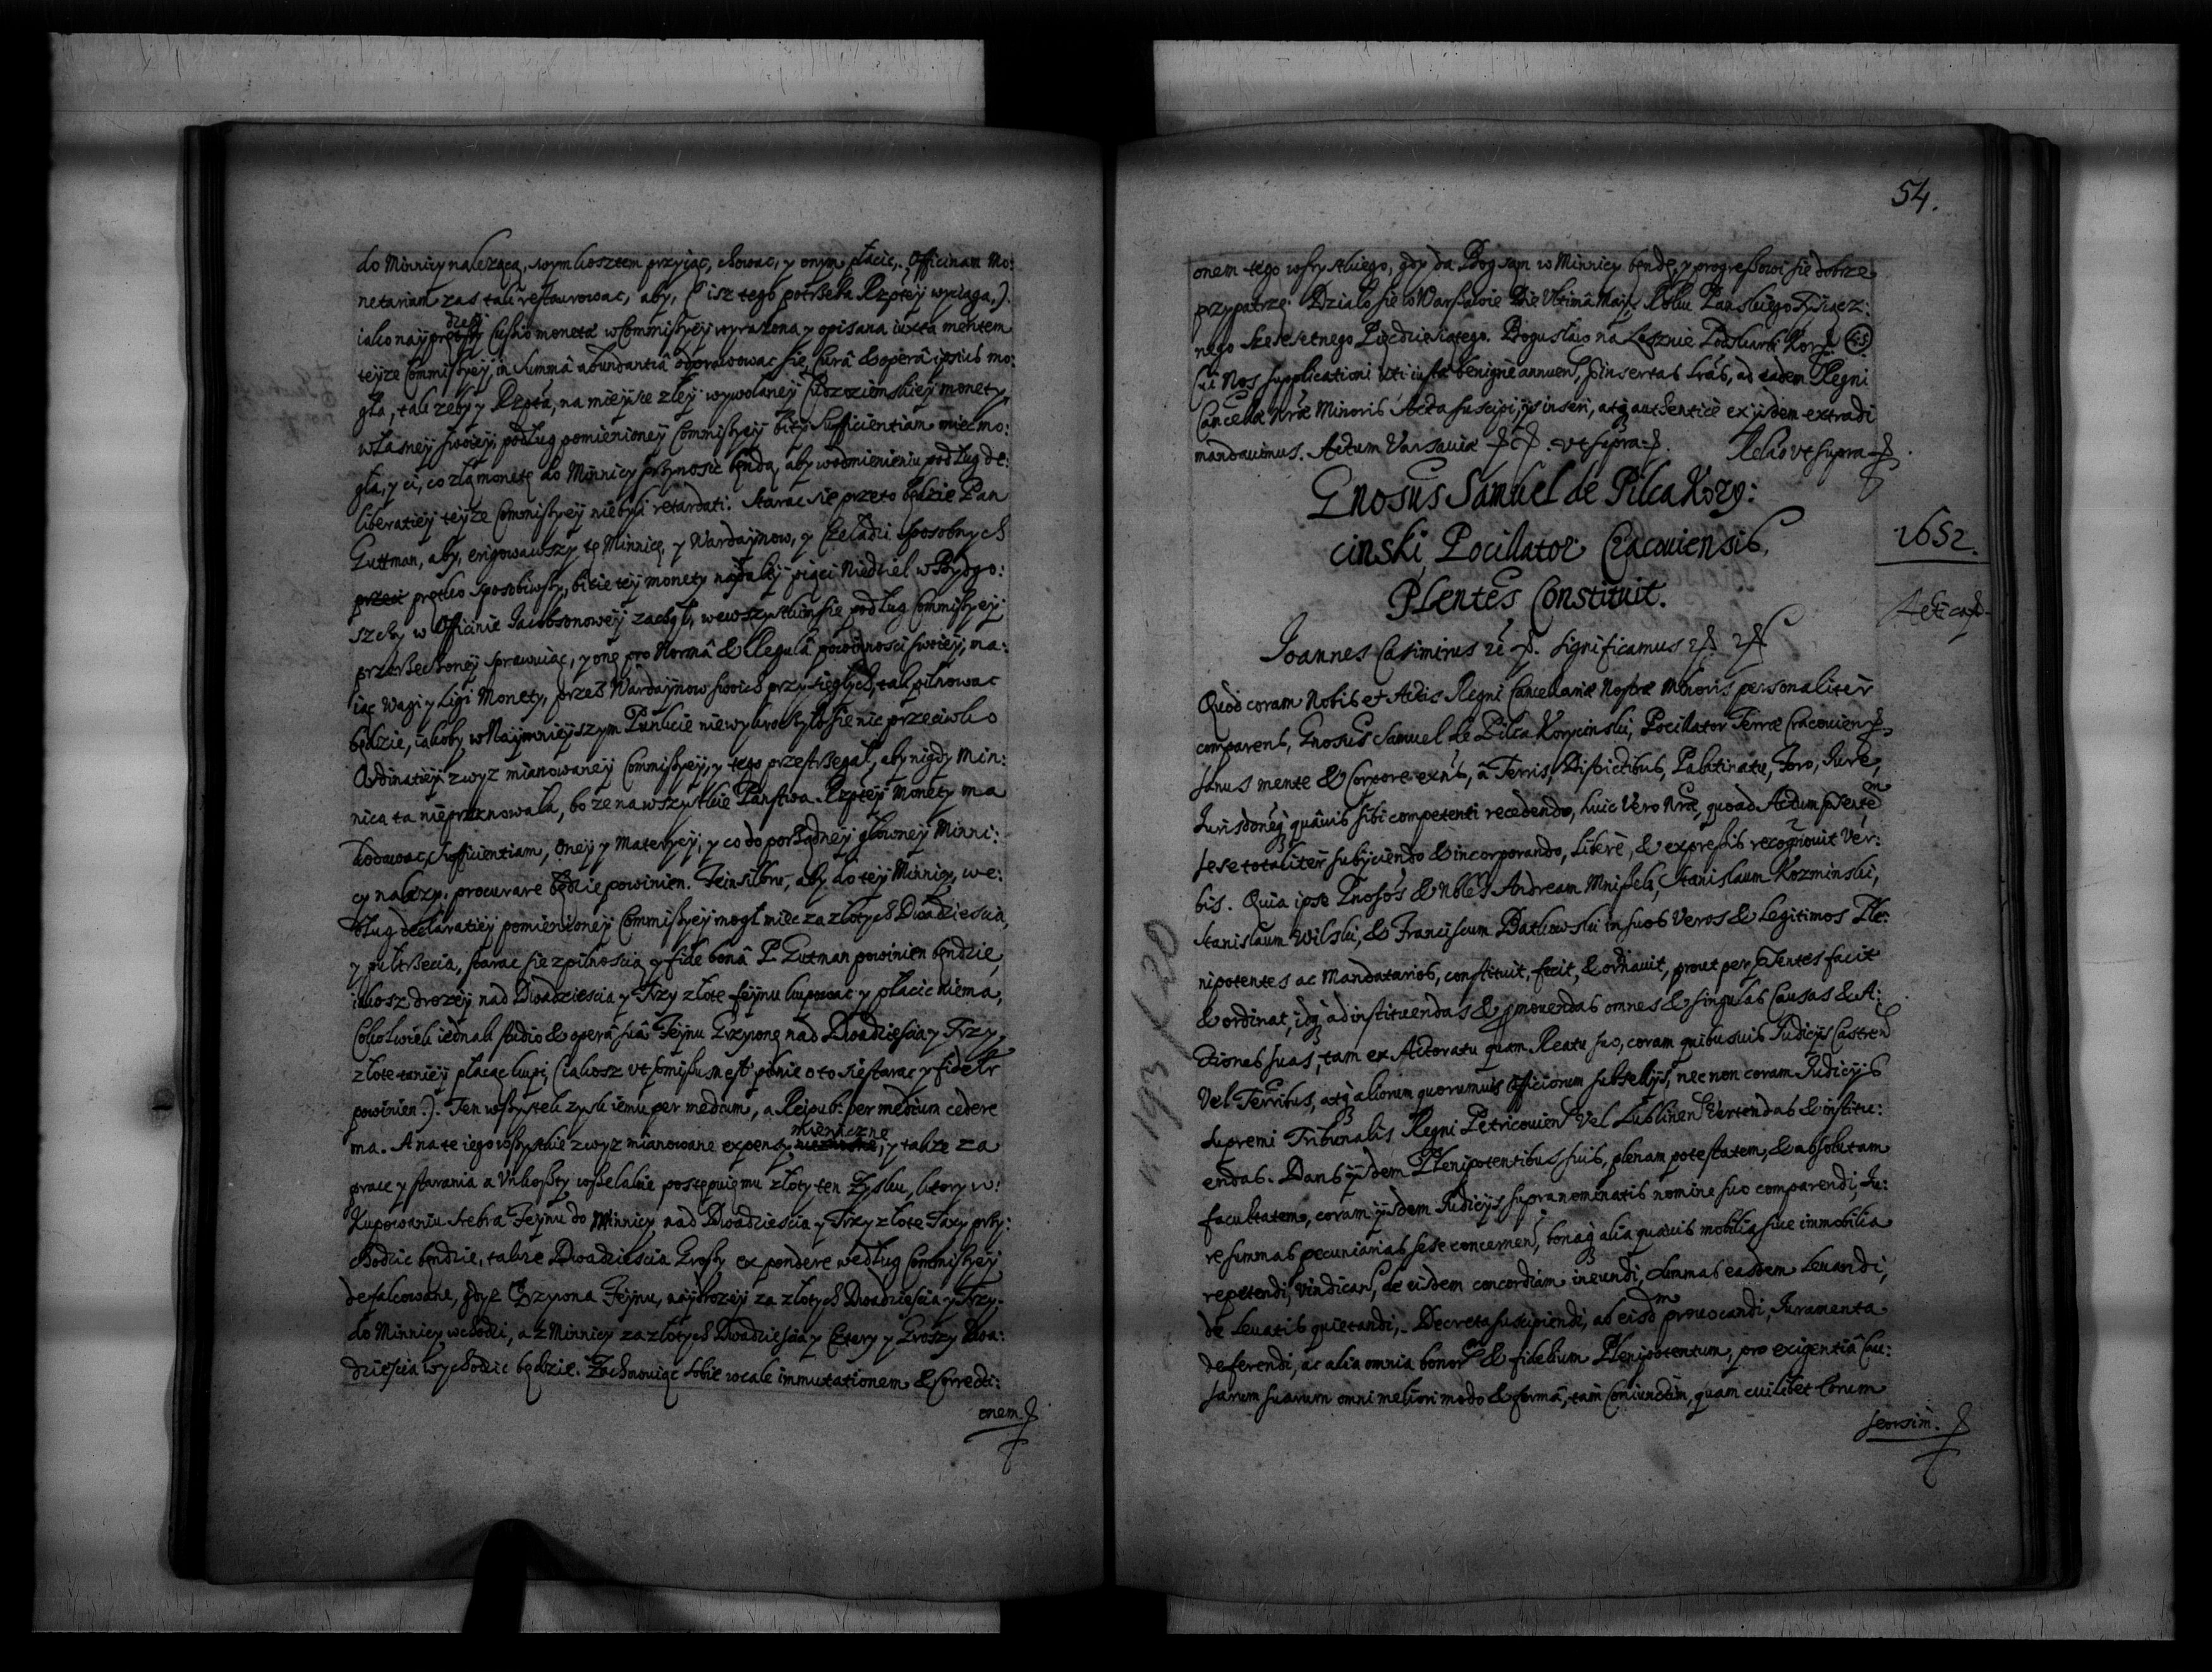 do Minnicy nalezącą, swym kosztem przyiąc, chowac, y onym płacic, Officinam Mo:
netariam zas tak restaurowac, aby, (isz tego potrzeba Rzptey wyciąga,)
iako nayprędzey Cusio monetæ w Commissyey wyrazona y opisana iuxta mentem
teyze Commissyey in summâ abundantiâ odprawowac się, curâ & operâ ipsius mo:
gła, tak zeby y Rzpta, na mieysce złey wywołaney Cudzoziemskiey monety,
własney swoiey podług pomienioney Commissyey bitey sufficientiam miec mo:
gła, y ci, co złą monetę do Minnicy przynosic będą, aby w odmienieniu podług de:
liberatiey teyze Commissyey nie byli retardati. Starac się przeto będzie Pan
Guttman, aby, erigowawszy tę Minnicę, y Wardaynow, y Czeladzi sposobnych
prędko sposobiwszy, bicie tey monety naydaley pięci Niedziel w Bydgo:
szczy w Officinie Jacobsonowey zaczął, we wszystkim się podług Commissyey
przerzeczoney sprawuiąc, y onę pro Normâ & Regulâ powinnosci swoiey, ma:
iąc Wagi y Ligi Monety, przez Wardaynow swoich przysięgłych, tak pilnowac
będzie, iakoby w Naymnieyszym Punkcie nie wykroczyło się nic przeciwko
Ordinatiey zwyz mianowaney Commissyey, y tego przestrzegał, aby nigdy Min:
nica ta nie prożnowała, bo ze na wszystkie Państwa Rzptey Monety ma
kodowac, sufficientiam, oney y Materyey, y co do porządney głowney Minni:
cy należy, procurare będzie powinien. Feinsilbru, aby do tey Minnicy, we:
dług declaratiey pomienioney Commissyey mogł miec za złotych Dwadziescia,
y puł trzecia, starac się z pilnoscią y fide bonâ P. Gutman powinien będzie,
iakosz drozey nad Dwadziescia y Trzy złote feynu kupowac y płacic nie ma,
Cokolwiek iednak studio & operâ suâ Feynu Grzywnę nad Dwadziescia y Trzy
złote taniey płacąc kupi, (iakosz vt promissum est pilnie o to się starac y fideltr
powinien.) Ten wszystek zysk iemu per medium, a Reipub: per medium cedere
ma. A na te iego wszystkie zwyz mianowane expensy mienniczne, y takze za
prace y starania a Vnkoszty wszelakie postępuię mu złoty ten Zysku, ktory w:
Kupowaniu srebra Feynu do Minnicy nad Dwadziescia y Trzy złote Taxy przy:
chodzic będzie, takze Dwadziescia Groszy ex pondere według Commissyey
defalcowane, gdyż Grzywna Feynu, naydrozey za złotych Dwadziescia y Trzy
do Minnicy wchodzi, a z Minnicy za złotych Dwadziescia y Cztery y Groszy Dwa:
dziescia wychodzic będzie. Zachowuiąc sobie wcale immutationem & correcti:
onem
54.
onem tego wszystkiego, gdy da Bog sam w Minnicy będę, y progressowi się dobrze
przypatrzę. Działo się w Warszawie Die Vltimâ Maij, Roku Panskiego Tysiącz:
nego szescsetnego Pięcdziesiątego. Bogusław na Lesznie Podskarbi Kor. LS
Cui Nos supplicationi vti iustæ benignè annuen, præinsertas Lras, ad eadem Regni
Cancellæ Nræ Minoris Acta suscipi, ijs inseri, atq authenticè ex ijsdem extradi
mandavimus. Actum Varsaviæ vt supra. Relao vt supra
Gnosus Samuel de Pilca Kory:
cinski, Pocillator Cracouiensis,
Plentes Constituit.
1652.
Joannes Casimirus Significamus
Quòd coram Nobis et Actis Regni Cancellariæ Nostræ Minoris personaliter
comparens, Gnosus Samuel de Pilca Korycinski, Pocillator Terræ Cracouien,
sanus mente & Corpore exñs, à Terris, Districtibus, Palatinatu, Foro, Iure,
Iurisdoneq quâuis sibi competenti recedendo, huic Vero Nræ, quoad Actum præsentem
sese totaliter subijciendo & incorporando, Liberè, & expressis recognouit Ver:
bis. Quia ipse Gnosos & Nbles Andream Mniszek, Stanislaum Kozminski,
Stanislaum Wilski, & Franciscum Batkowski in suos Veros & Legitimos Ple:
nipotentes ac Mandatarios, constituit, fecit, & ordnauit, prout per præsentes facit
& ordinat, idq ad instituendas & promouendas omnes & singulas Causas & A:
ctiones suas, tam ex Actoratu quam Reatu suo, coram quibusuis Judicijs Castren
Vel Terribus, atq aliorum quorumuis Officiorum subsellijs, nec non coram Judicijs
Supremi Tribunalis Regni Petricouien Vel Lublinen Vertendas & institu:
endas. Dans ijsdem Plenipotentibus suis, plenam potestatem, & absolutam
facultatem, coram ijsdem Judicijs supranominatis nomine suo comparendi, Iu:
re summas pecuniarias sese concernen, bonaq alia quæuis mobilia siue immobilia
repetendi, vindican, de eisdem concordiam ineundi, summas easdem Leuandi,
de Leuatis quietandi, Decreta suscipiendi, ab eisdm prouocandi, Iuramenta
deferendi, ac alia omnia bonor & fidelium Plenipotentum, pro exigentiâ Cau:
sarum suarum omni meliori modo & formâ, tàm Coniunctim, quam cuilibet Eorum
seorsim.